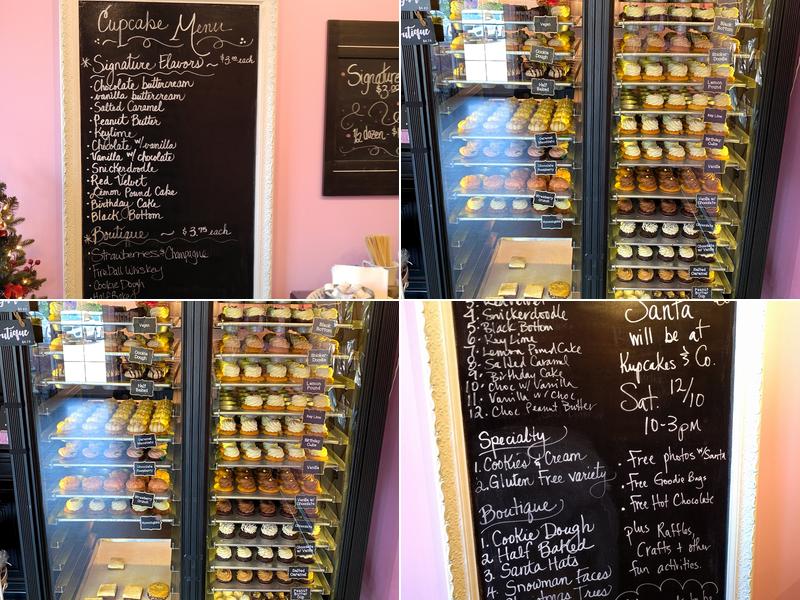 Cupcake Menu
* Signature Flavors ~ $3.00 each
· Chocolate buttercream
· vanilla buttercream
· Salted Caramel
· Peanut Butter
· Keylime
· Chocolate w/ vanilla
· Vanilla w/ chocolate
· Snickerdoodle
· Red Velvet
· Lemon Pound Cake
· Birthday Cake
· Black Bottom
* Boutique ~ $3.75 each
· Strawberries & Champagne
· FireBall Whiskey
· Cookie Dough
· Half Baked
Signature
1/2 dozen
Vegan
Cookie Dough
Half Baked
Black Bottom
Snicker Doodle
Lemon Pound
Key Lime
Birthday Cake
Vanilla
Vanilla w/ Chocolate
Chocolate w/ Vanilla
Salted Caramel
Vegan
Cookie Dough
Half Baked
Black Bottom
Snicker Doodle
Lemon Pound
Key Lime
Birthday Cake
Vanilla
Vanilla w/ Chocolate
Chocolate w/ Vanilla
Salted Caramel
Peanut Butter Cup
4. Snickerdoodle
5. Black Bottom
6. Key Lime
7. Lemon Pound Cake
8. Salted Caramel
9. Birthday Cake
10. Choc w/ Vanilla
11. Vanilla w/ Choc
12. Choc Peanut Butter
Specialty
1. Cookies & Cream
2. Gluten Free variety
Boutique
1. Cookie Dough
2. Half Baked
3. Santa Hats
4. Snowman Faces
Santa
will be at
Kupcakes & Co.
Sat. 12/10
10-3pm
· Free photos w/ Santa
· Free Goodie Bags
· Free Hot Chocolate
plus Raffles,
Crafts + other
fun activities.